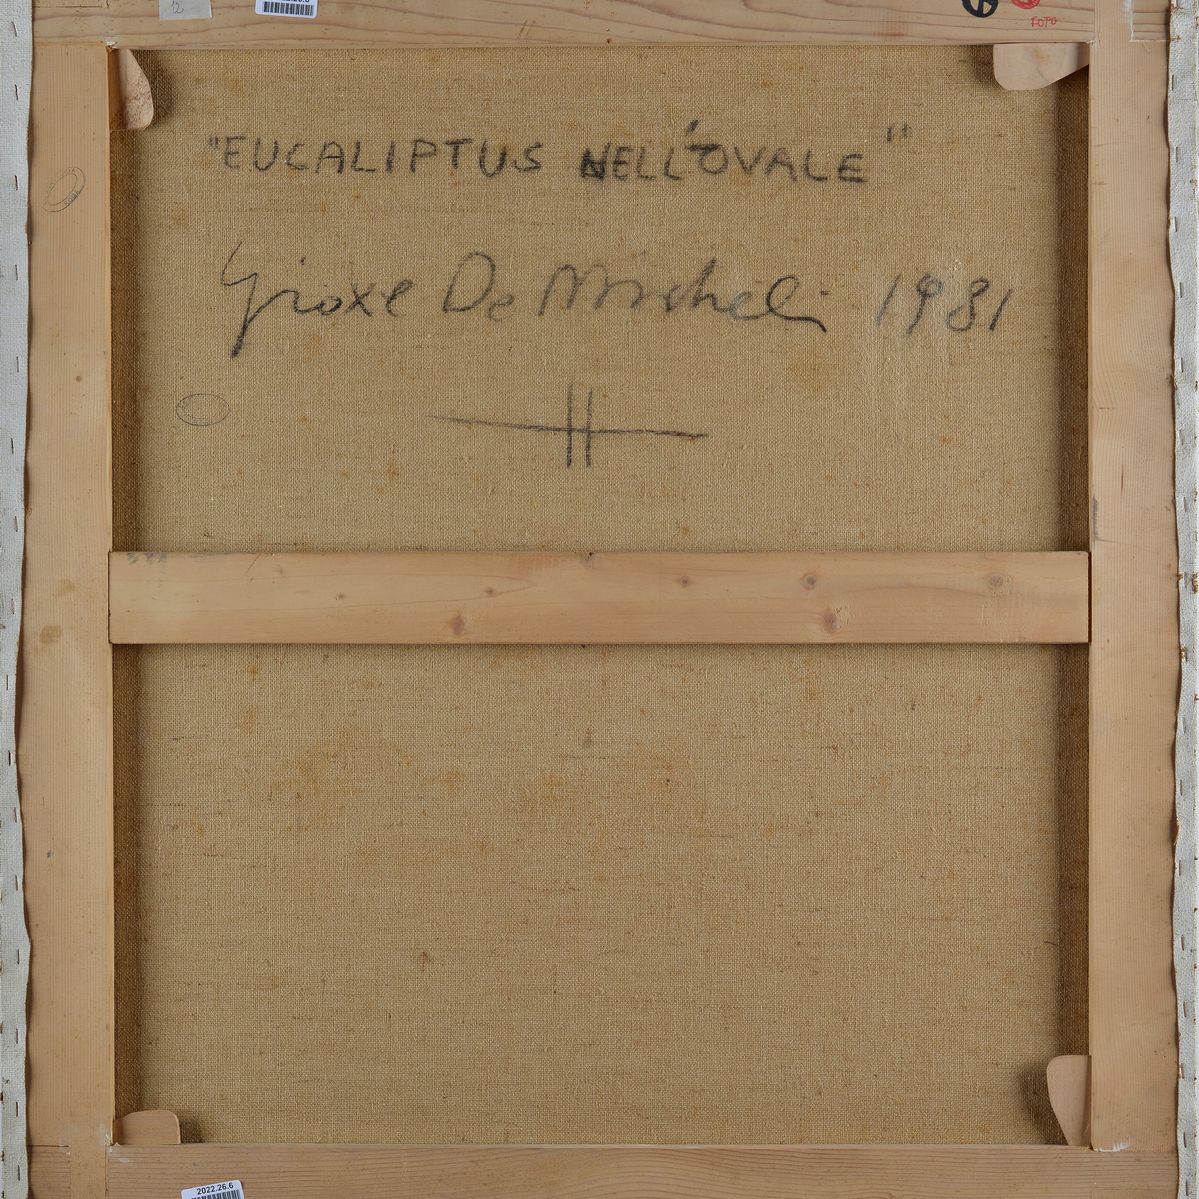 12
FOTO
"EUCALIPTUS NELL'OVALE"
Gioxe De Micheli 1981
2022.26.6